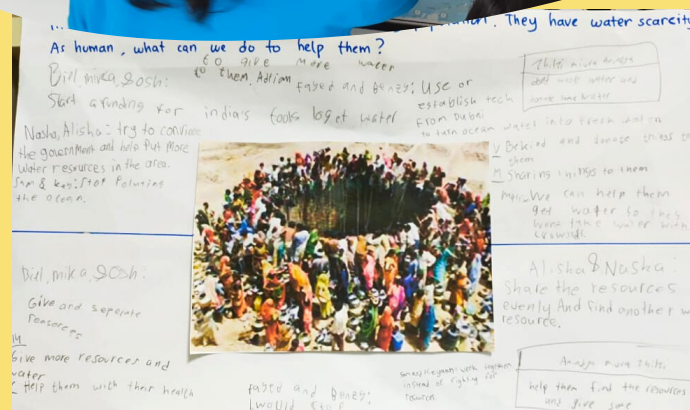 They have water scarcity
As human, what can we do to help them?
Bill, mika, Josh:
Start a funding for india's tools to get water
to give more water
to them. Adrian
Fayed and Benzy: Use or
establish tech
from Dubai
to turn ocean water into fresh water
dont waste water and
Nasha, Alisha: try to convince
the government and help Put More
water resources in the area.
Stop Poluting
the ocean.
V Be kind and donate things to
them
M Sharing things to them
We can help them
get water so they
take water with
Bill, mika, Josh:
Give and seperate
resources
Give more resources and
water
Help them with their health
Alisha & Nasha:
Share the resources
evenly And find another
resource.
work together
instead of fighting for
resources
Fayed and Benzy:
I would stop
help them find the resources
and give some